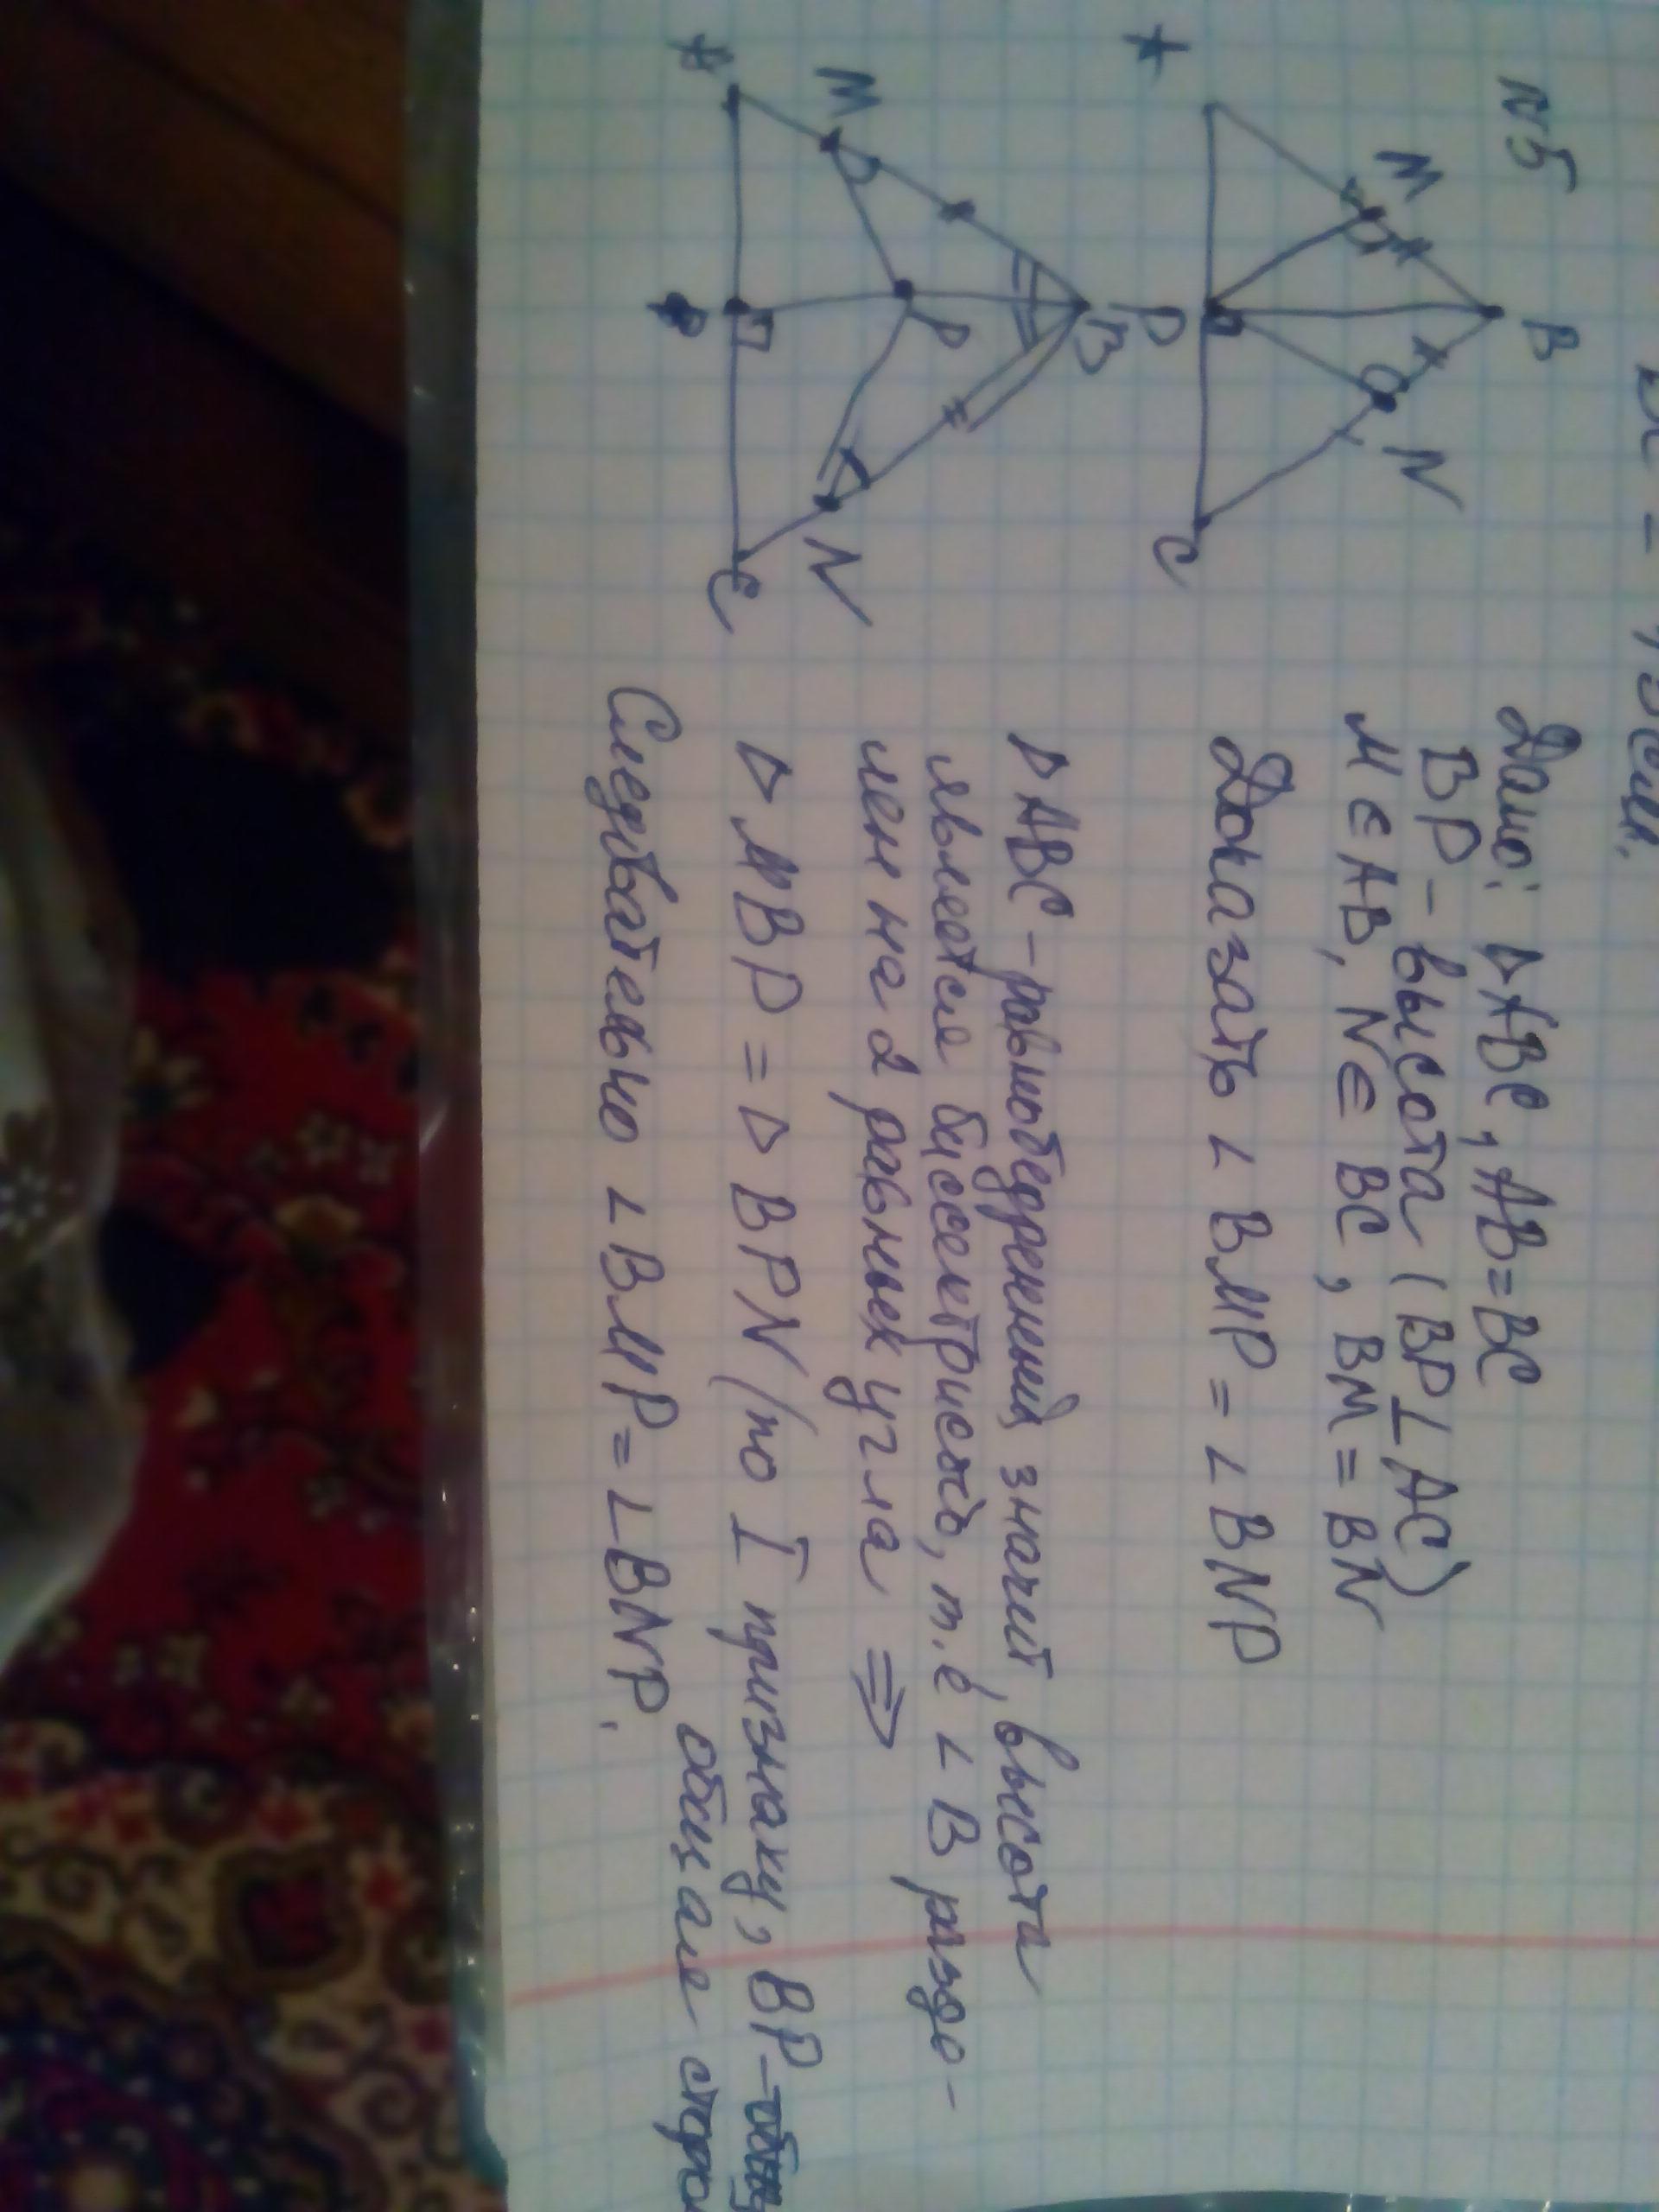 N5
Дано: △ABC, AB=BC
BP - высота (BP⊥AC)
M∈AB, N∈BC, BM=BN
Доказать ∠BMP=∠BNP
△ABC - равнобедренный, значит, высота
является биссектрисой, т.е ∠B разде-
лен на 2 равных угла ⇒
△MBP = △BPN (по I признаку, BP-
общая
Следовательно ∠BMP=∠BNP.
A
M
B
N
P
C
A
M
B
P
N
C